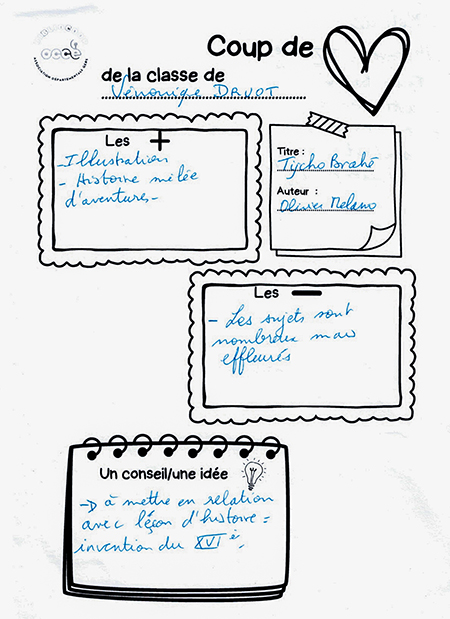 occe
ASSOCIATION DÉPARTEMENTALE
Coup de
de la classe de
Véronique DRUOT
Les +
- Illustration
- Histoire mêlée
d'aventures -
Titre :
Tycho Brahé
Auteur :
Olivier Melano
Les -
- Les sujets sont
nombreux mais
effleurés
Un conseil/une idée
→ à mettre en relation
avec leçon d'histoire =
invention du XVIè.